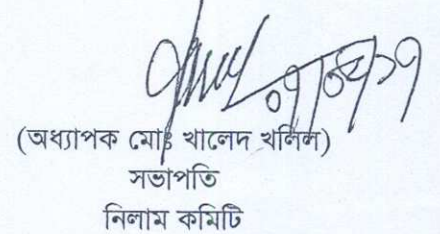 (অধ্যাপক মোঃ খালেদ খলিল)
সভাপতি
নিলাম কমিটি